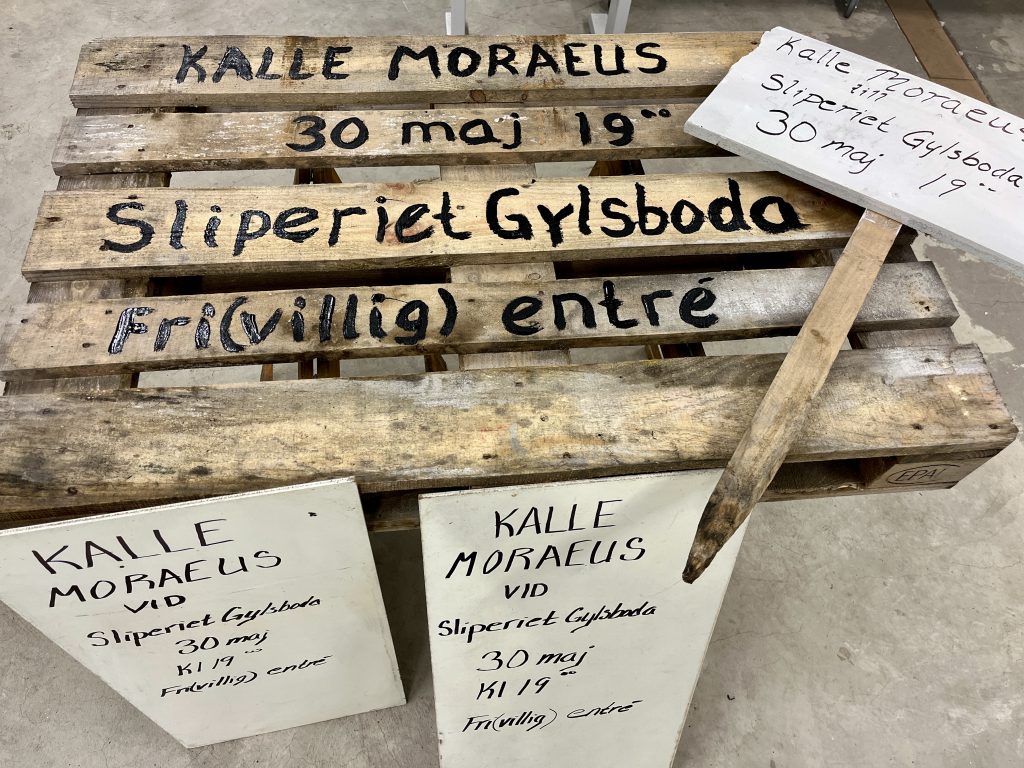 KALLE MORAEUS
30 maj 19⁰⁰
Sliperiet Gylsboda
Fri(villig) entré
Kalle Moraeus
till
Sliperiet Gylsboda
30 maj 19⁰⁰
EPAL
KALLE
MORAEUS
VID
Sliperiet Gylsboda
30 maj
Kl 19⁰⁰
Fri(villig) entré
KALLE
MORAEUS
VID
Sliperiet Gylsboda
30 maj
Kl 19⁰⁰
Fri(villig) entré